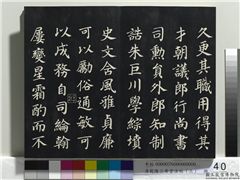 久更其職用得其
才朝議郎行尚書
司勳員外郎知制
誥朱巨川學綜墳
史文含風雅貞廉
可以勵俗通敏可
以成務自司綸翰
屢變星霜酌而不
40